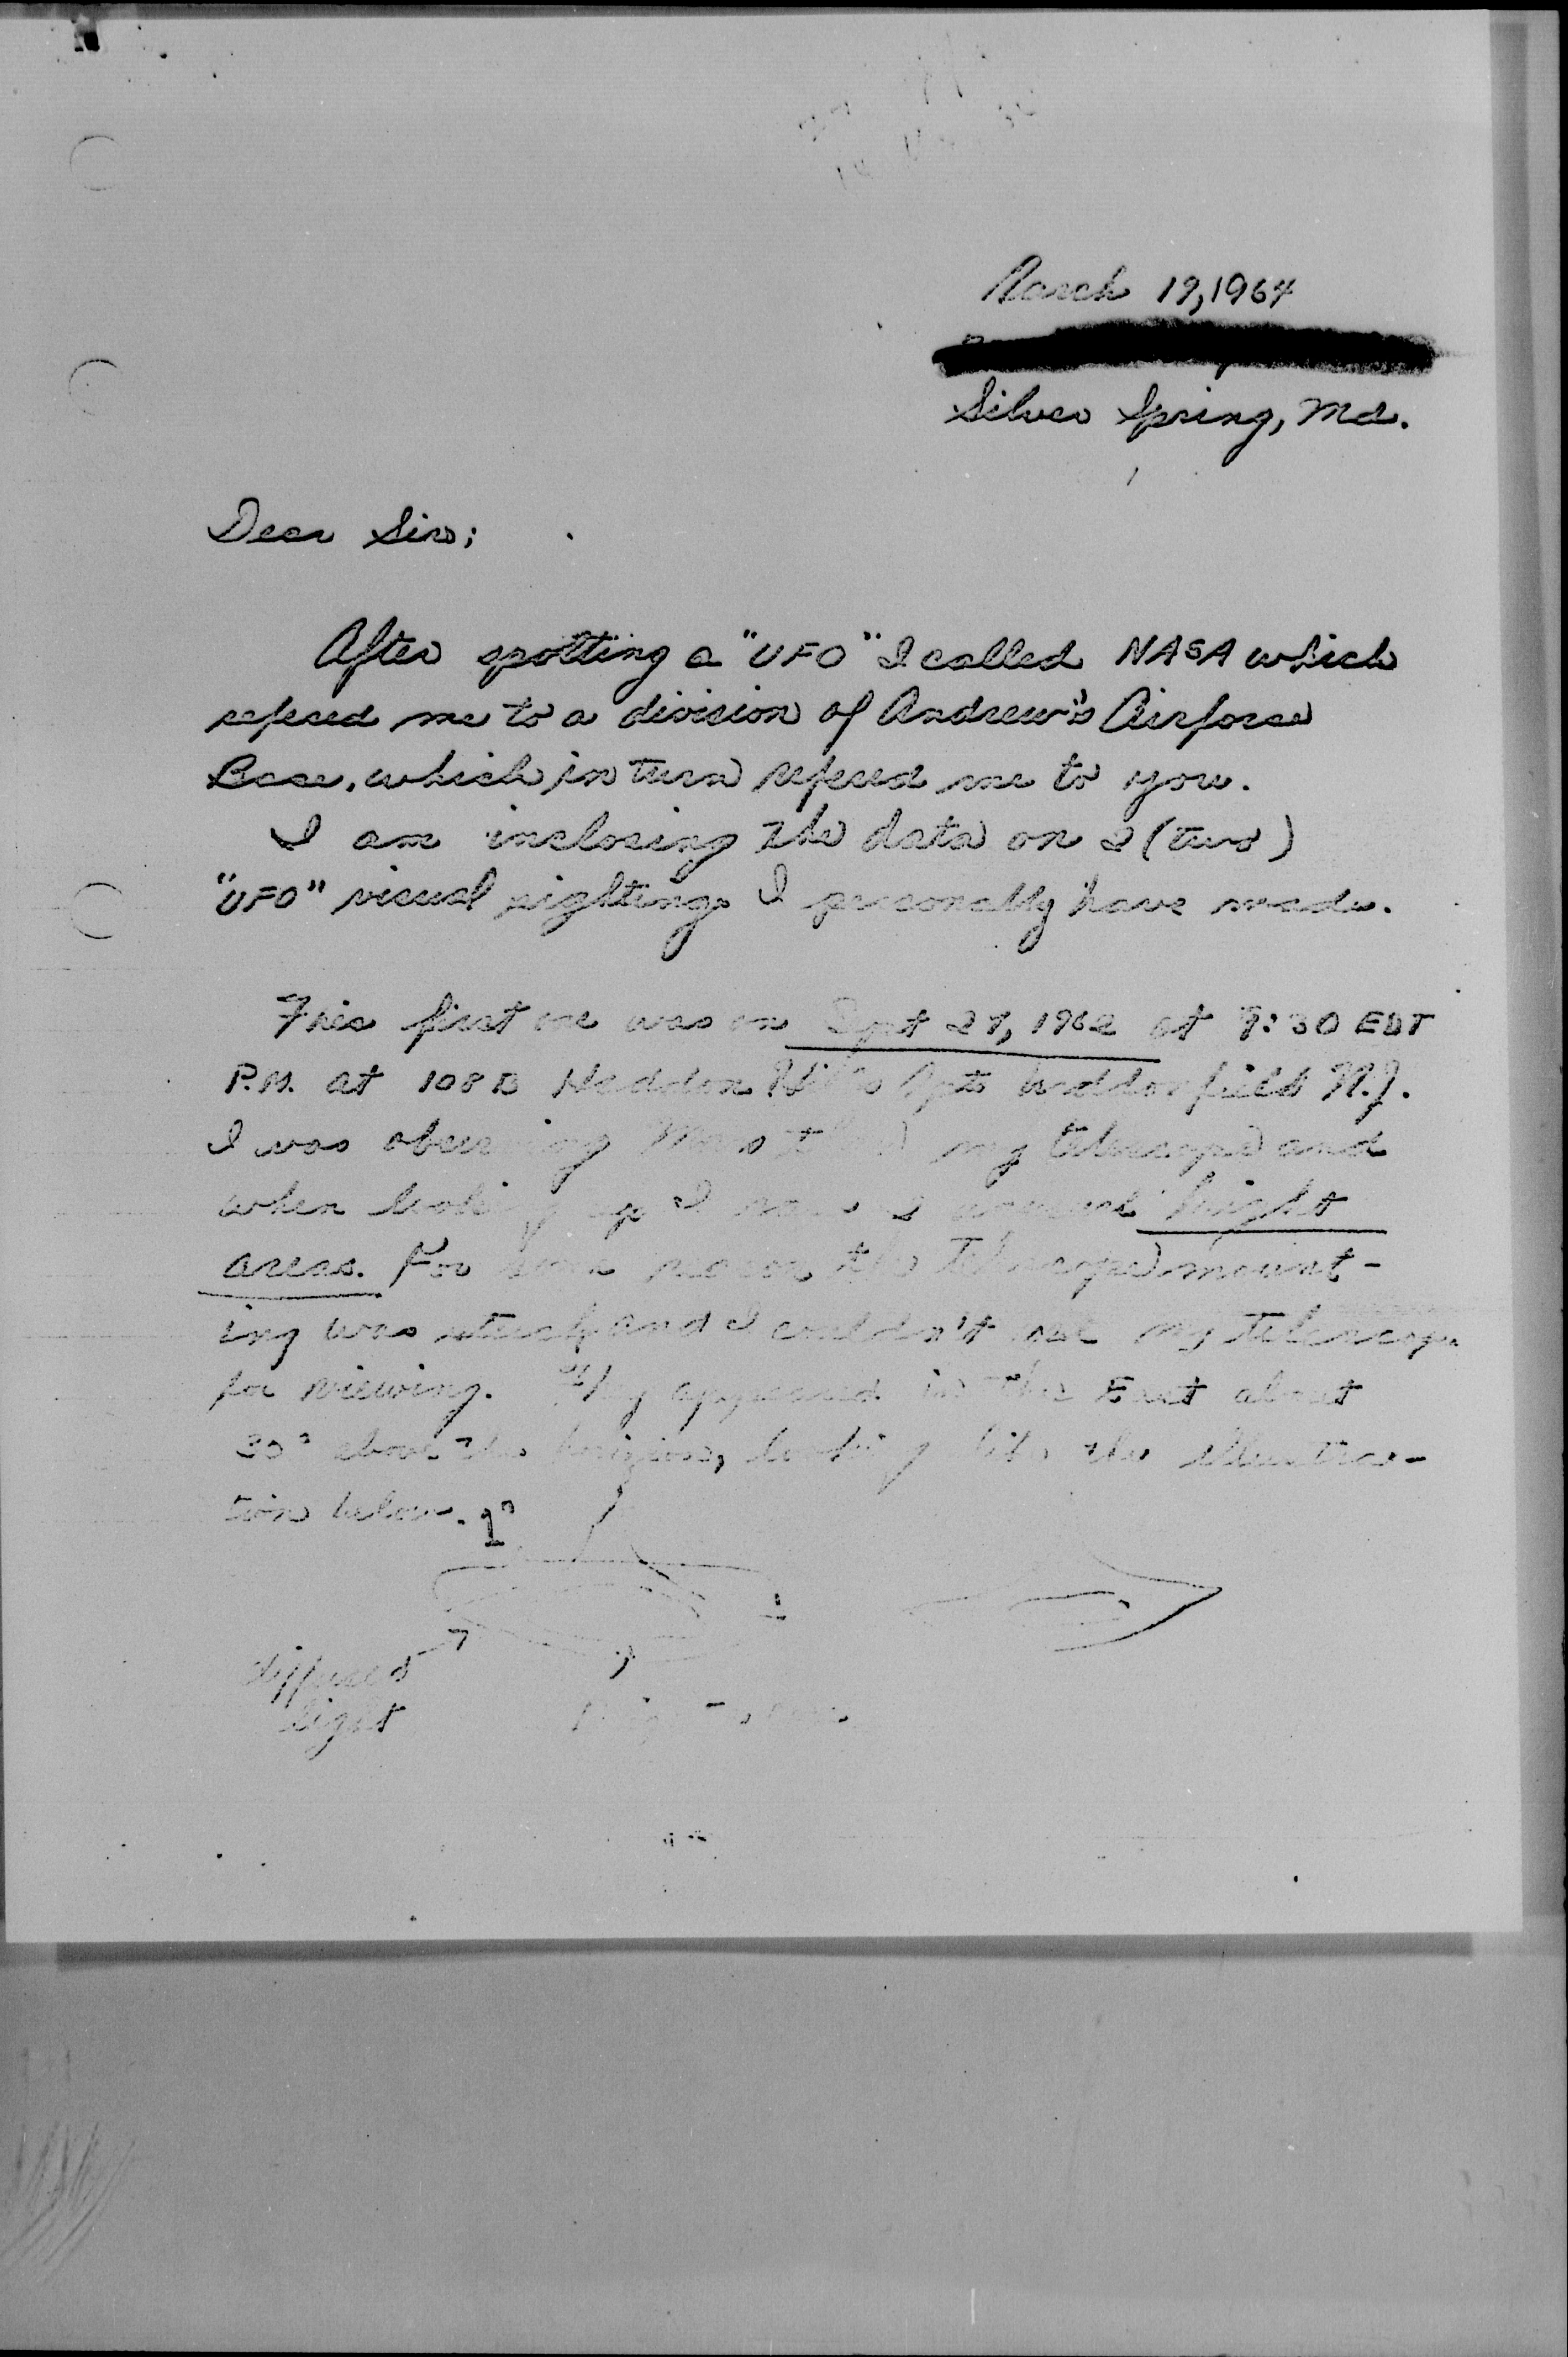 March 19, 1964
Silver Spring, Md.
Dear Sirs;
After spotting a "UFO" I called NASA which
refered me to a division of Andrew's Airforce
Base, which in turn refered me to you.
I am inclosing the data on 2 (two)
"UFO" visual sightings I personally have made.
This first one was on Sept 27, 1962 at 9:30 EDT
P.M. at 108 B Haddon Hills Apts Haddonfield N.J.
I was observing my telescope and
when looking up I bright
areas. For some reason the telescope mount-
ing was stuck and I couldn't use my telescope
for viewing. They appeared in the East about
30° above the horizon, looking like the illustra-
tion below. 1°
diffused
light